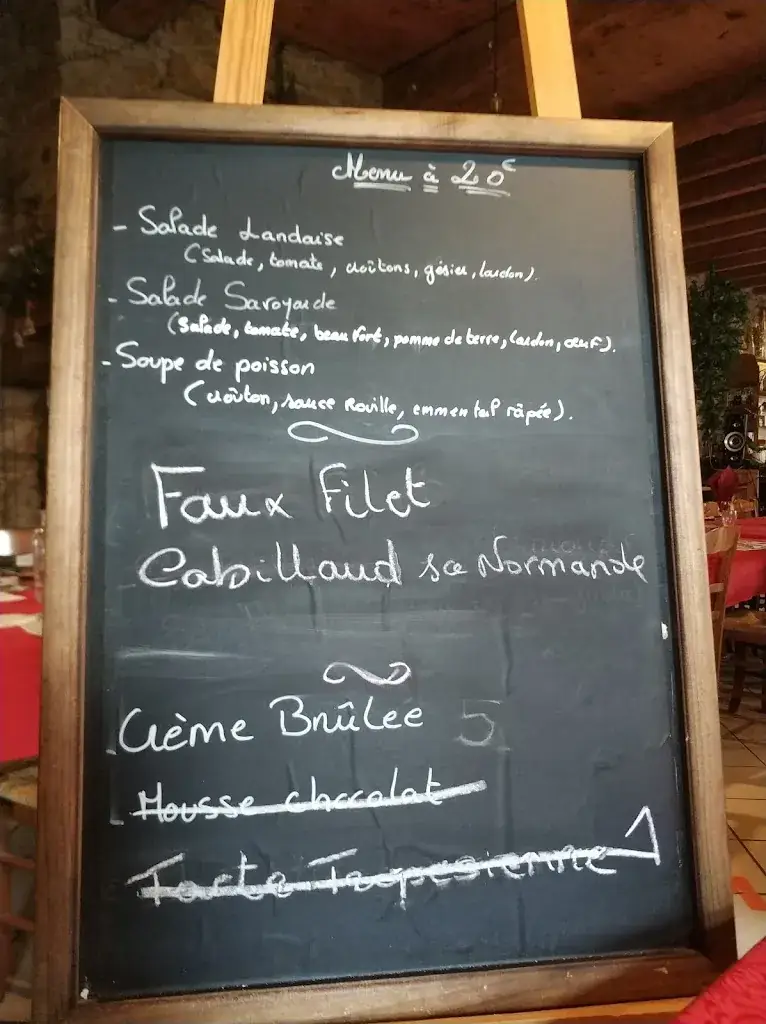 Menu à 20€
- Salade Landaise
(Salade, tomate, croûtons, gésier, lardon).
- Salade Savoyarde
(Salade, tomate, beaufort, pomme de terre, lardon, œuf).
- Soupe de poisson
(croûton, sauce Rouille, emmental râpée).
Faux Filet
Cabillaud sce Normande
Crème Brûlee 5
Mousse chocolat
Tarte Tropesienne 1